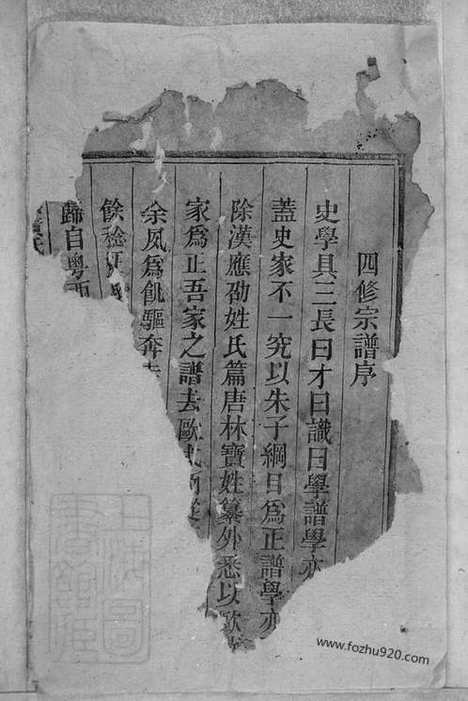 四修宗譜序
史學具三長曰才曰識曰學譜學亦
蓋史家不一究以朱子綱目為正譜學亦
除漢應劭姓氏篇唐林寶姓纂外悉以歐
家為正吾家之譜去歐
余夙為飢驅奔走
餘稔
歸自粵西
www.fozhu920.com